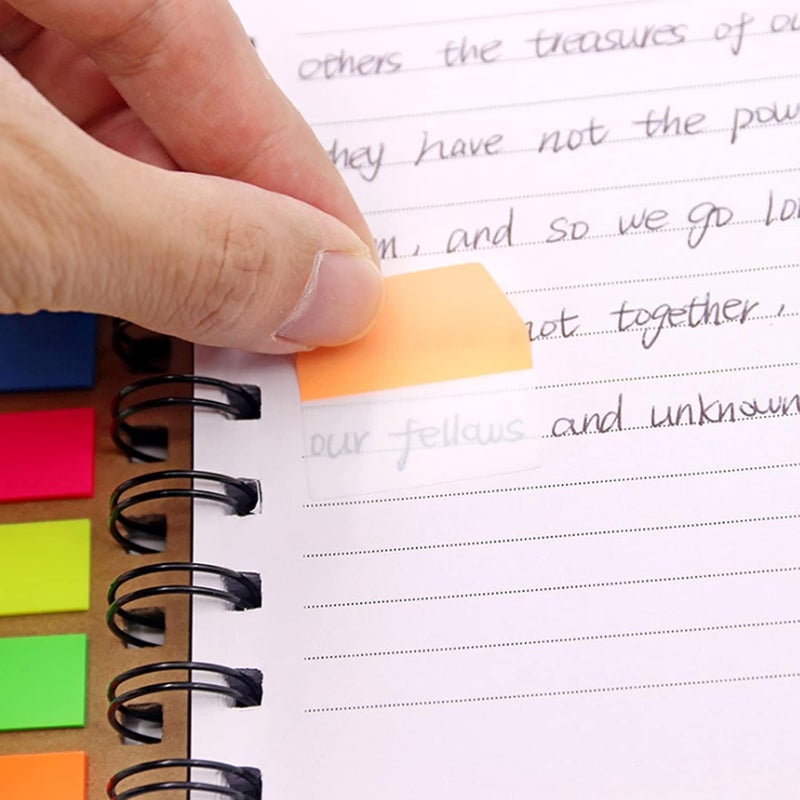 others the treasures of
they have not the
and so we go
not together,
our fellows and unknown